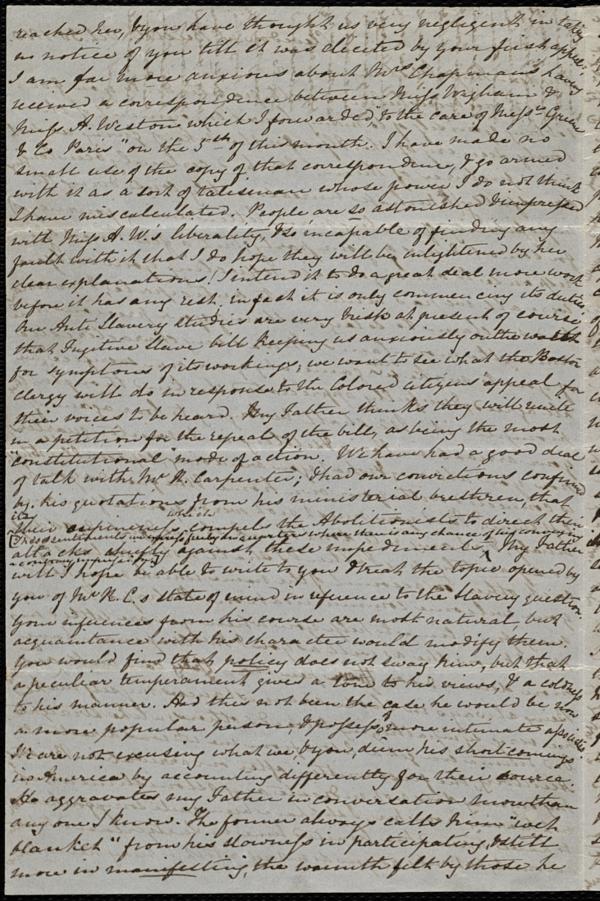 reached her, & you have thought us very negligent in taking
no notice of you till it was elicited by your fresh appeal.
I am far more anxious about Mrs Chapman's having
received a correspondence between Miss Wigham &
Miss A. Weston which I forwarded "to the care of Messrs Green
& Co Paris" on the 5th of this month. I have made no
small use of the copy of that correspondence, & go armed
with it as a sort of talisman whose power I do not think
I have miscalculated. People are so astonished & impressed
with Miss A. W's liberality, & so incapable of finding any
fault with it that I do hope they will be enlightened by her
clear explanations! I intend it to do a great deal more work
before it has any rest, in fact it is only commencing its duties
Our Anti Slavery studies are very brisk at present of course
that Fugitive Slave bill keeping us anxiously on the watch
for symptoms of its workings; we want to see what the Boston
clergy will do in response to the Colored citizens appeal for
their voices to be heard. My Father thinks they will unite
in a petition for the repeal of the bill, as being the most
"constitutional" mode of action. We have had a good deal
of talk with Mr R. Carpenter; & had our convictions confirmed
by his quotations from his ministerial brethren, that
its which
their supineness compels the Abolitionists to direct their
attacks chiefly against these impediments. My Father
will I hope be able to write to you & treak the topic opened by
you of Mr R. C.s state of mind in reference to the Slavery question.
Your inferences from his course are most natural, but
acquaintance with his character would modify them.
You would find that policy does not sway him, but that
a peculiar temperament gives a tone to his views, & a coldness
to his manner. Had this not been the case he would be now
a more popular person, & possess more intimate associates
We are not excusing what we, & you, deem his short comings
in America by accounting differently for their source
He aggravates my Father in conversation more than
any one I know. The former always calls him "wet
blanket" from his slowness in participating, & still
more in manifesting the warmth felt by those he